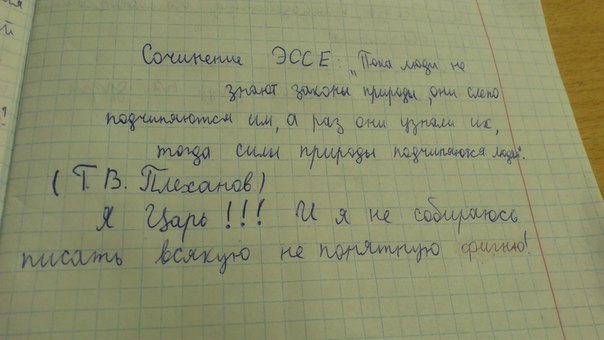 Сочинение ЭССЕ: "Пока люди не
знают законы природы, они слепо
подчиняются им, а раз они узнали их,
тогда силы природы подчиняются людям".
(Г. В. Плеханов)
Я Царь!!! И я не собираюсь
писать всякую не понятную фигню!